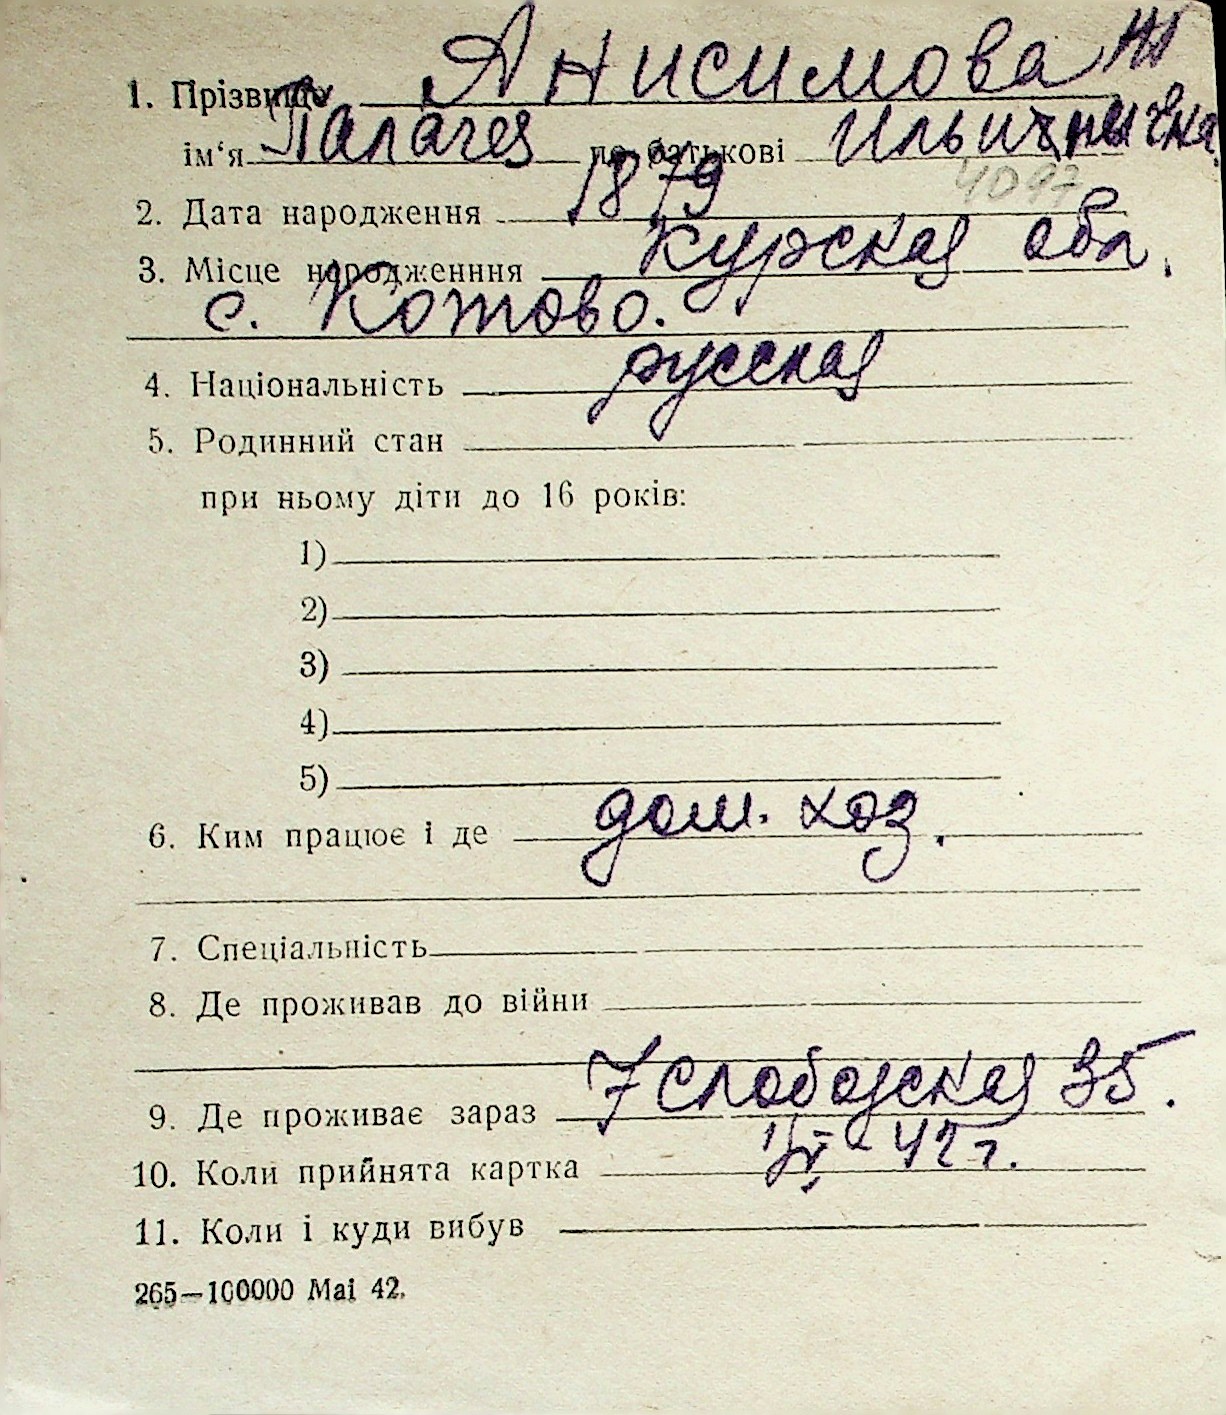 1. Прізвище Анисимова
ім‘я Палагея по батькові Ильинична
4097
2. Дата народження 1879
3. Місце народженння Курская обл.
с. Котово.
4. Національність русская
5. Родинний стан
при ньому діти до 16 років:
1)
2)
3)
4)
5)
6. Ким працює і де дом. хоз.
7. Спеціальність
8. Де проживав до війни
9. Де проживає зараз 7 Слободская 35.
10. Коли прийнята картка 42 г.
11. Коли і куди вибув
265—100000 Mai 42.